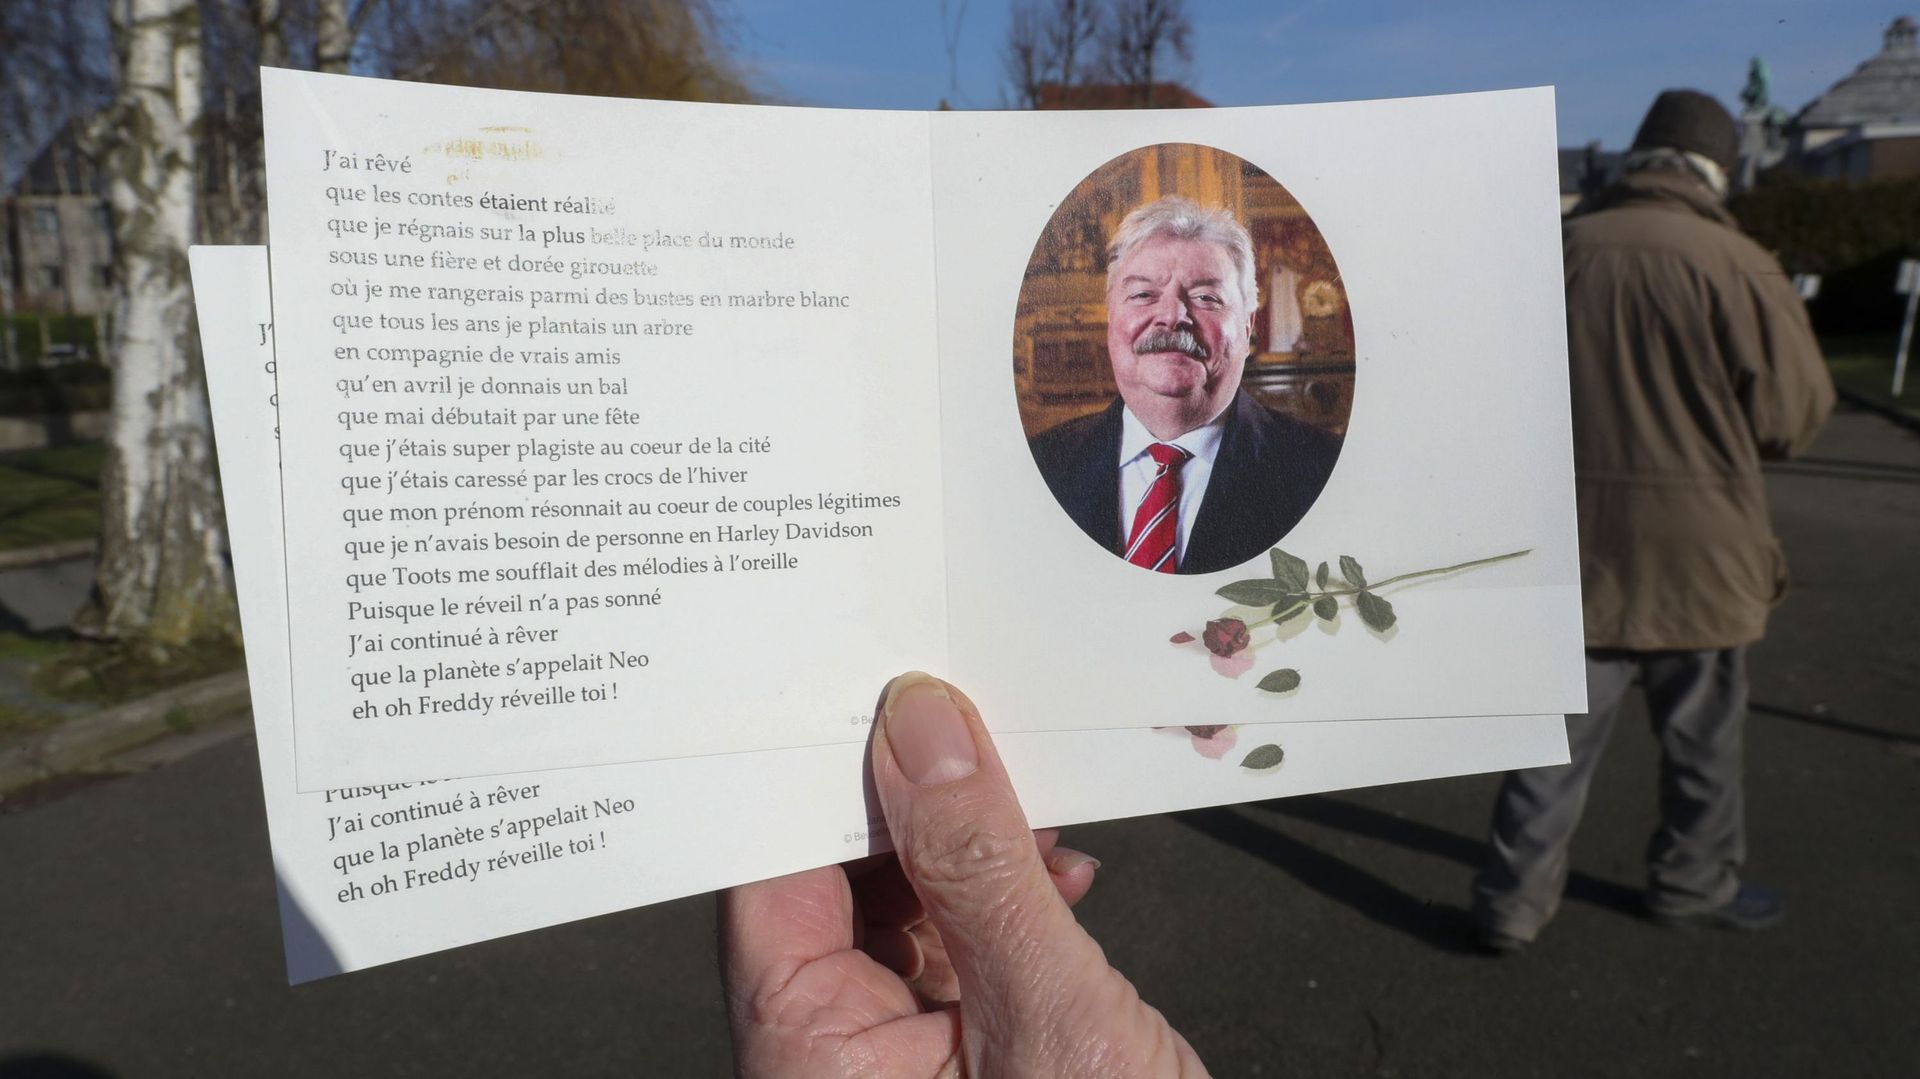 J'ai rêvé
que les contes étaient réalité
que je régnais sur la plus belle place du monde
sous une fière et dorée girouette
où je me rangerais parmi des bustes en marbre blanc
que tous les ans je plantais un arbre
en compagnie de vrais amis
qu'en avril je donnais un bal
que mai débutait par une fête
que j'étais super plagiste au coeur de la cité
que j'étais caressé par les crocs de l'hiver
que mon prénom résonnait au coeur de couples légitimes
que je n'avais besoin de personne en Harley Davidson
que Toots me soufflait des mélodies à l'oreille
Puisque le réveil n'a pas sonné
J'ai continué à rêver
que la planète s'appelait Neo
eh oh Freddy réveille toi !
©
Puisque
J'ai continué à rêver
que la planète s'appelait Neo
eh oh Freddy réveille toi !
©